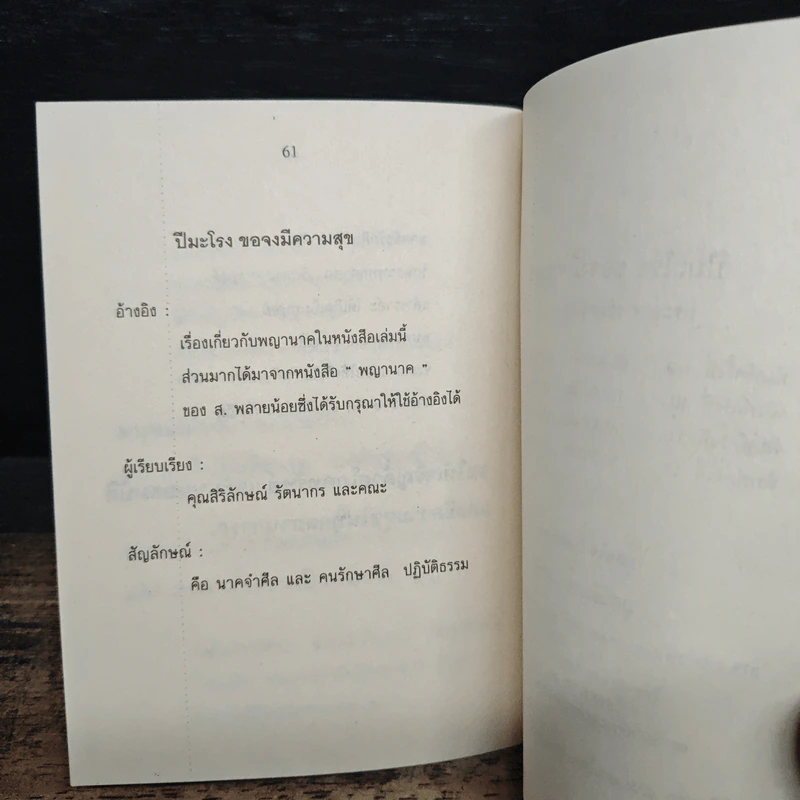 61
ปีมะโรง ขอจงมีความสุข
อ้างอิง :
เรื่องเกี่ยวกับพญานาคในหนังสือเล่มนี้
ส่วนมากได้มาจากหนังสือ " พญานาค "
ของ ส. พลายน้อยซึ่งได้รับกรุณาให้ใช้อ้างอิงได้
ผู้เรียบเรียง :
คุณสิริลักษณ์ รัตนากร และคณะ
สัญลักษณ์ :
คือ นาคจำศีล และ คนรักษาศีล ปฏิบัติธรรม